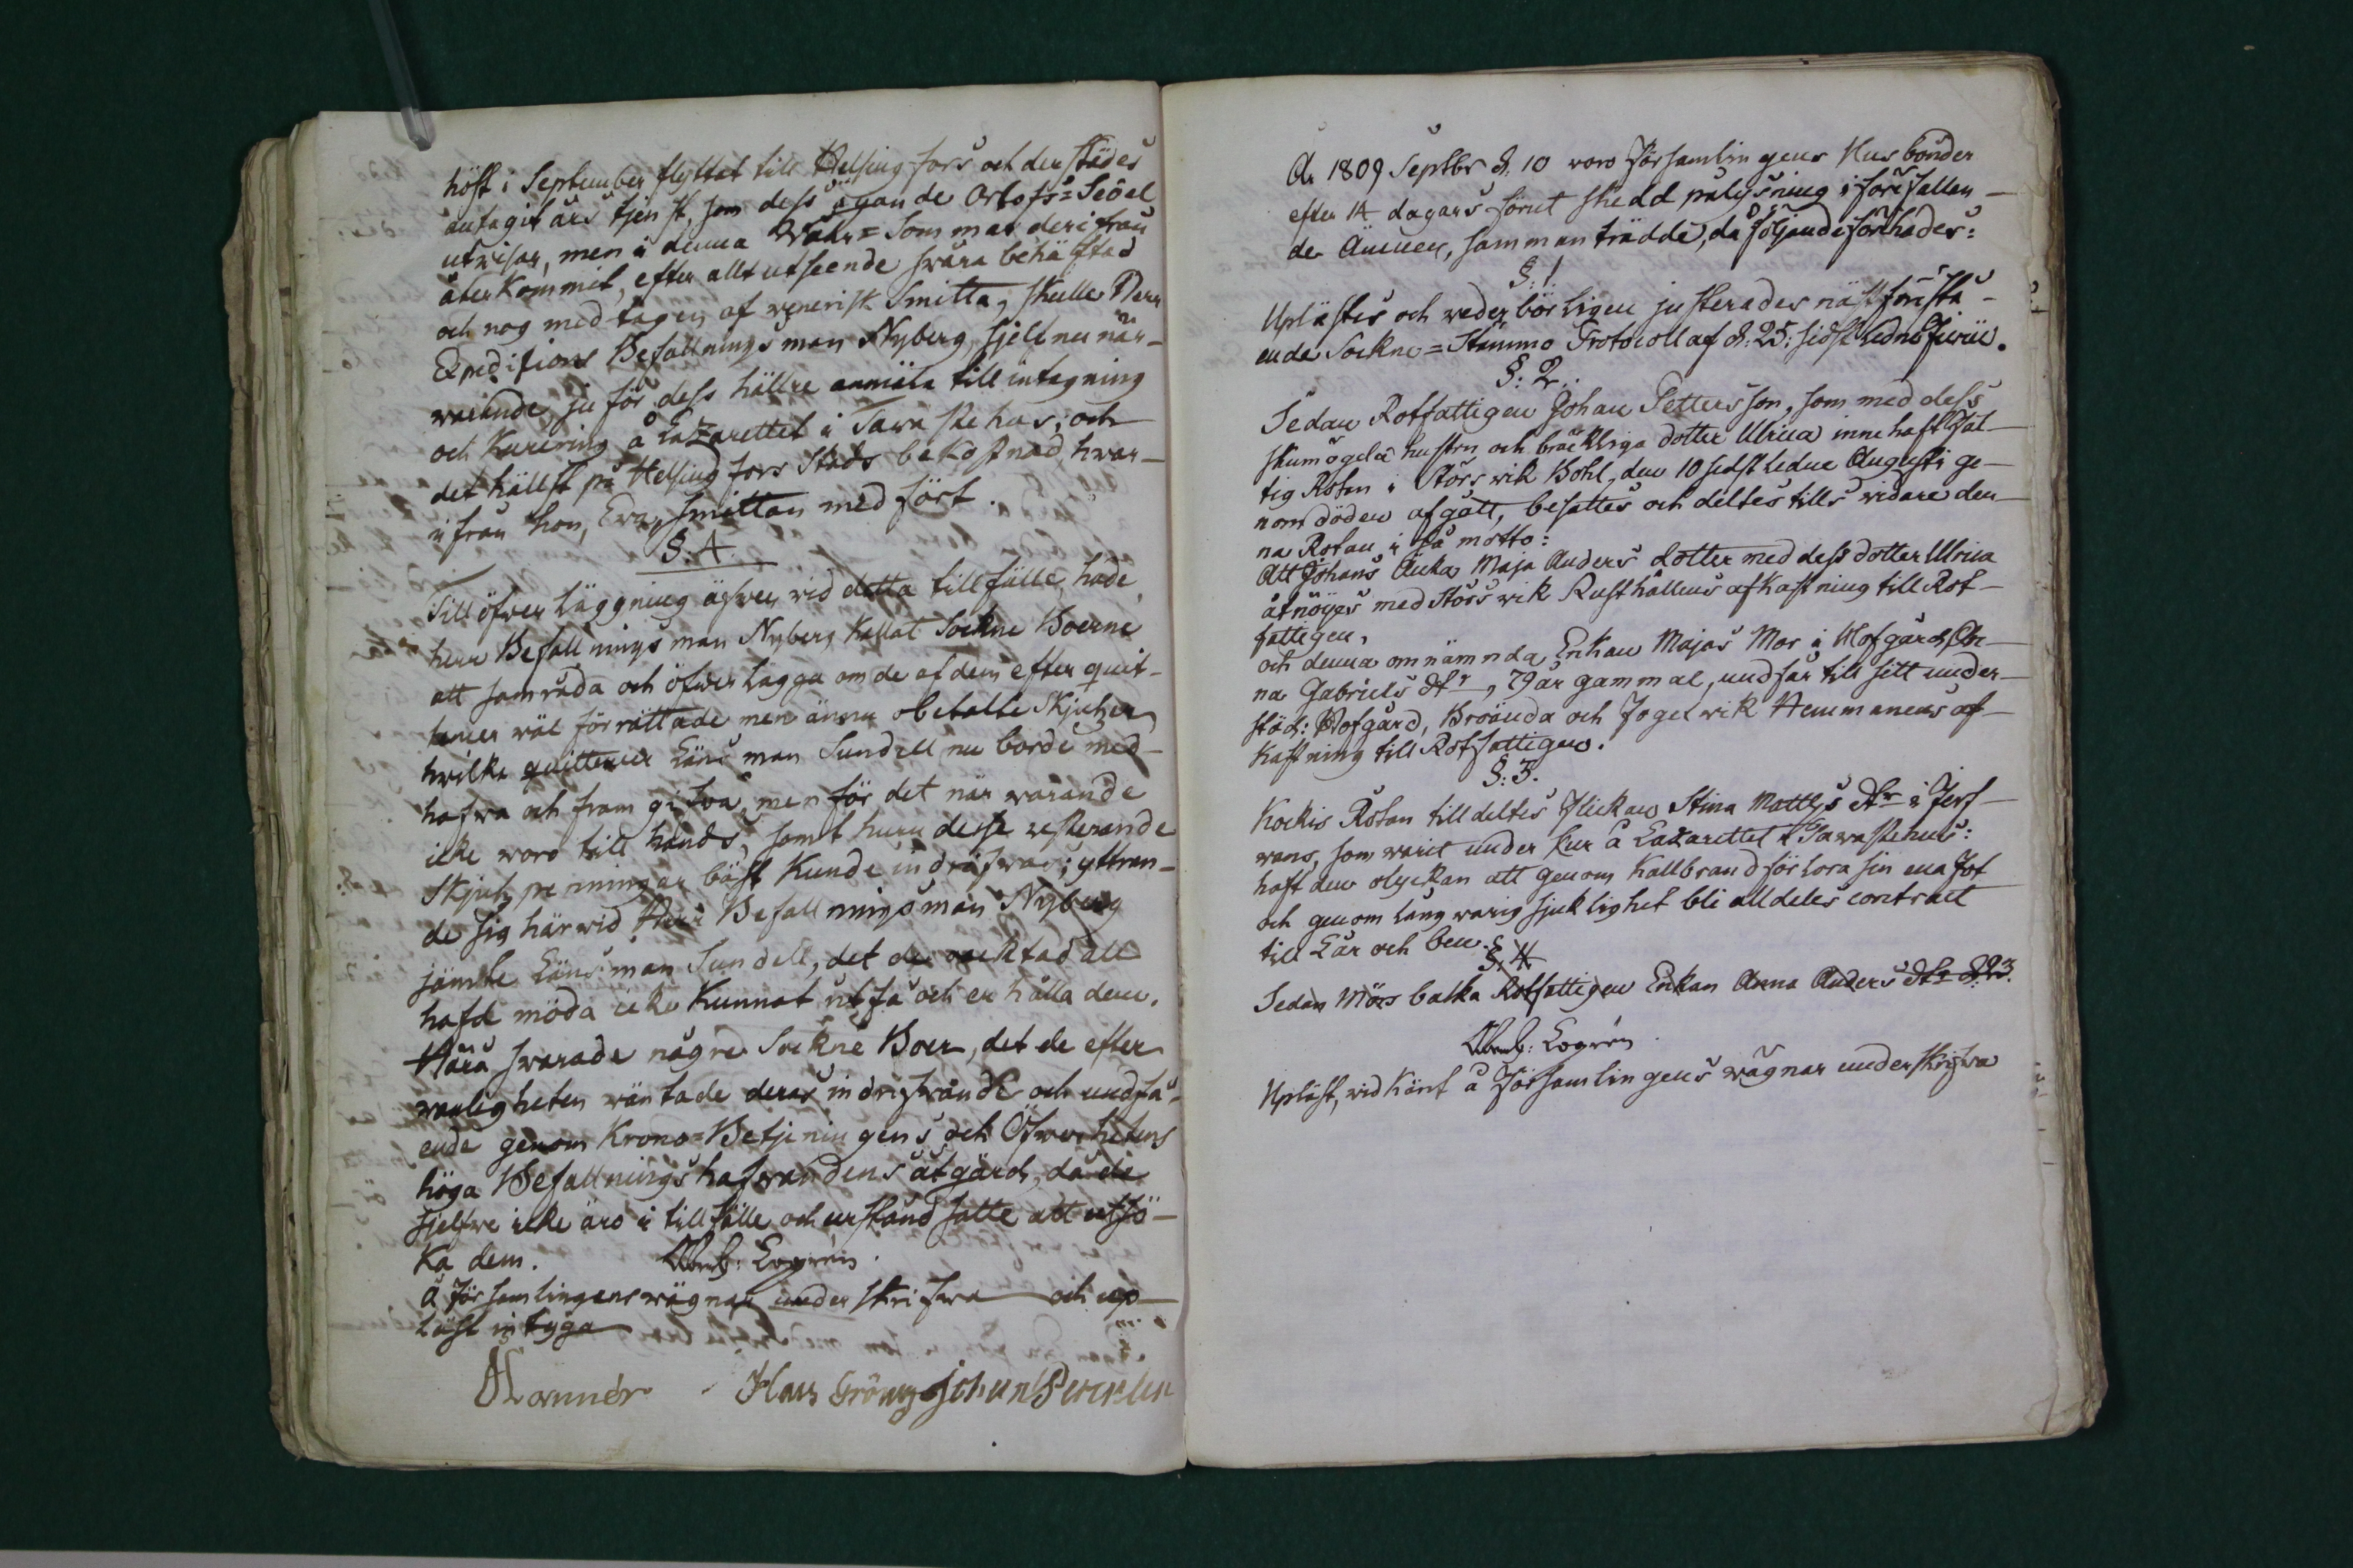 höst i September flyttat till Helsing fors och der städes
antagit års tjenst, som dess ägande Orlofs=Sedel
utwisar, men i denna Wåhr=Sommar derifrån
återkommit, efter allt utseende swåra behäftad
och nog med tagen af venerisk Smitta, skulle Herr
Expeditions Befallningsman Nyberg, sjelf nu när-
warande, ju för dess hällre anmäla till intagning
och Kurering å Lazarettet i Tawastehus; och
det hällst på Helsingfors Stads bekostnad, hwar-
ifrån hon, Ewa, smittan medfört.
§. 4.
Till öfwerläggning äfwen wid detta tillfälle, hade
herr Befallningsman Nyberg kallat Sockne Boerne
att samråda och öfwerlägga om de af dem efter quit-
tencer wäl förrättade men ännu obetalte Skjutser
hwilka quittencer Länsman Sundell nu borde med-
hafwa och framgifwa, men för det närwarande
icke woro till hands, samt huru desse resterande
Skjutspenningar bäst kunde indrifwas; yttran-
de sig härwid Herr Befallningsman Nyberg
jämte Länsman Sundell, det de oacktad all
hafd möda icke kunnat utfå och erhålla dem.
Håra swarade någre Sockne Boer, det de efter
wanligheten wäntade deras indrifwande och undfå-
ende genom Krono=Betjeningens och Öfwerhetens
höga Befallningshafwandens åtgärd, då de
sjelfwe icke äro i tillfälle och urståndsatte att utsö-
ka dem. Logrén.
å Församlingens wägnar underskrifwa och up-
läst intyga
Hans Gröng Johan
A. 1809 Septbr d. 10 woro Församlingens Husbönder
efter 14 dagars förut skedd pålysning i förefallen-
de Ämnen, samman trädde, då följande förehades:
§. 1.
Uplästes och wederbörligen justerades näst förestå-
ende Sockne=Stämmo Protocoll af d. 25: sidstledne Junii.
§: 2.
Sedan Rotfattigen Johan Pettersson, som med dess
skumögda hustru och bräckliga dotter Ulrica innehaft Fat-
tig Rotan i Störswik Bohl, den 10 sidstledne Augusti ge-
nom döden afgått, besattes och deltes tills widare den-
na Rotan i så motto:
Att Johans Änka Maja Anders dotter med dess dotter Ulrica
åtnöijes med Störswik Rusthållens afkastning till Rot-
fattigen,
och denna omnämnda Enkan Majas Mor i Hofgård An-
na Gabriels dtr, 79 år gammal, undfår till sitt under-
stöd: Hofgård, Broända och Fogelwik Hemmanens af-
kastning till Rotfattigen.
§: 3.
Kockis Rotan tilldeltes Flickan Stina Matts dtr i Jerf-
wans, som warit under kur å Lazarettet i Tawastehus:
haft den olyckan att genom Kallbrand förlora sin ena Fot
och genom långwarig sjuklighet bli alldeles contract
till Lår och ben.
§. 4
Sedan Mörsbacka Rotfattigen Enkan Anna Anders dtr d. 23.
Logrén
Upläst, widkänt å Församlingens wägnar underskrifwa